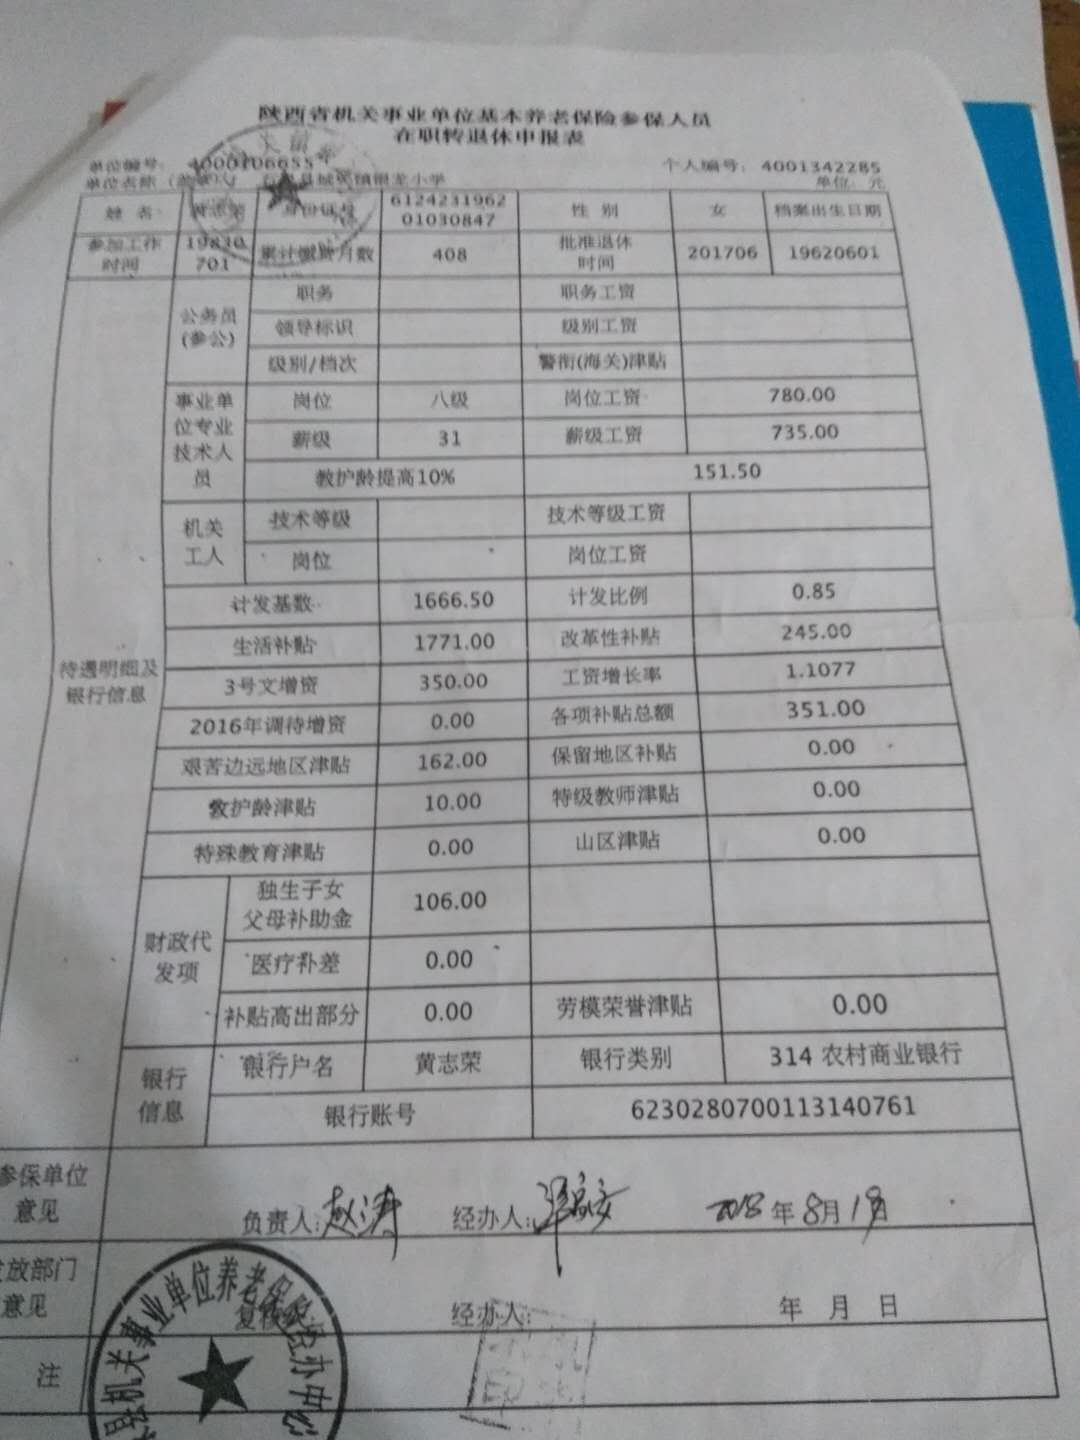 陕西省机关事业单位基本养老保险参保人员
在职转退休申报表
单位编号: 4000106655 个人编号: 4001342285
单位名称 小学 单位: 元
姓 名 黄志荣 身份证号 612423196201030847 性 别 女 档案出生日期
参加工作时间 19830701 累计缴费月数 408 批准退休时间 201706 19620601
待遇明细及银行信息
公务员(参公) 职务 职务工资
领导标识 级别工资
级别/档次 警衔(海关)津贴
事业单位专业技术人员 岗位 八级 岗位工资 780.00
薪级 31 薪级工资 735.00
教护龄提高10% 151.50
机关工人 技术等级 技术等级工资
岗位 岗位工资
计发基数 1666.50 计发比例 0.85
生活补贴 1771.00 改革性补贴 245.00
3号文增资 350.00 工资增长率 1.1077
2016年调待增资 0.00 各项补贴总额 351.00
艰苦边远地区津贴 162.00 保留地区补贴 0.00
教护龄津贴 10.00 特级教师津贴 0.00
特殊教育津贴 0.00 山区津贴 0.00
财政代发项 独生子女父母补助金 106.00
医疗补差 0.00
补贴高出部分 0.00 劳模荣誉津贴 0.00
银行信息 银行户名 黄志荣 银行类别 314 农村商业银行
银行账号 6230280700113140761
参保单位意见
负责人: 赵涛 经办人: 2018年8月19日
发放部门意见
复核 经办人: 年 月 日
注
县机关事业单位养老保险经办中心